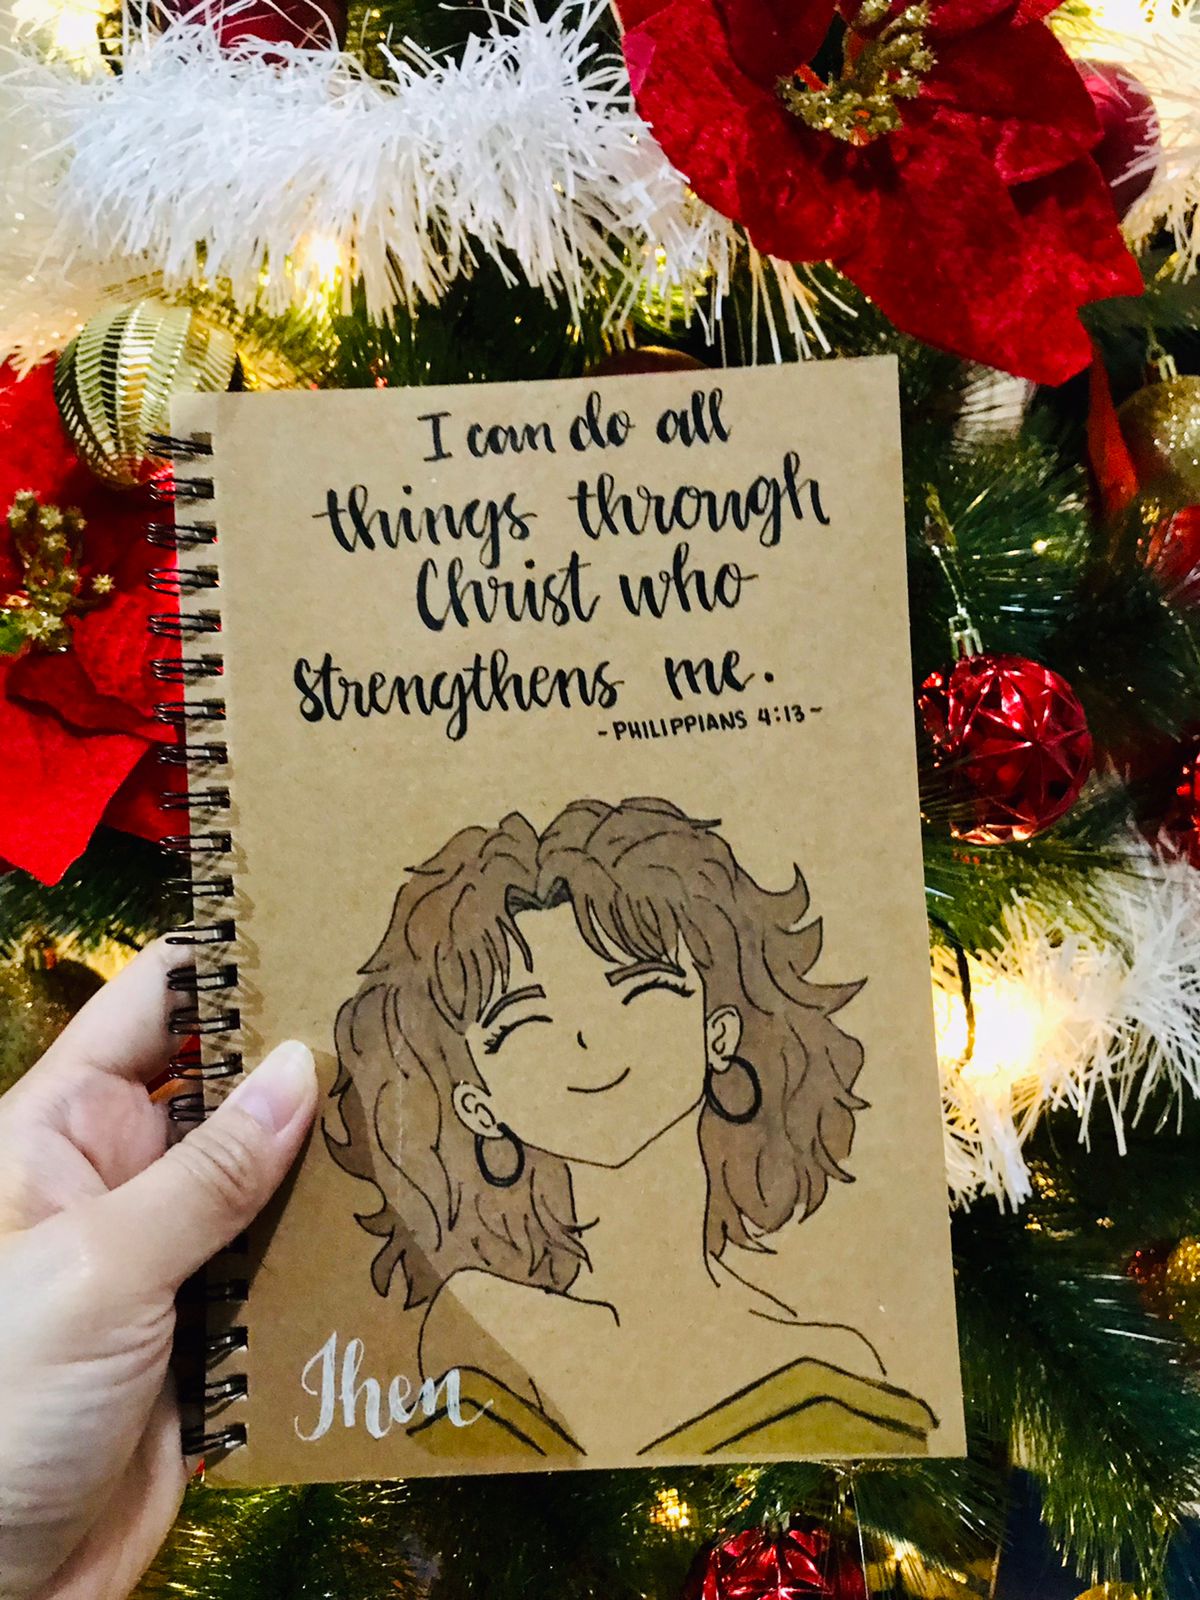 I can do all
things through
Christ who
strengthens me.
-PHILIPPIANS 4:13-
Jhen